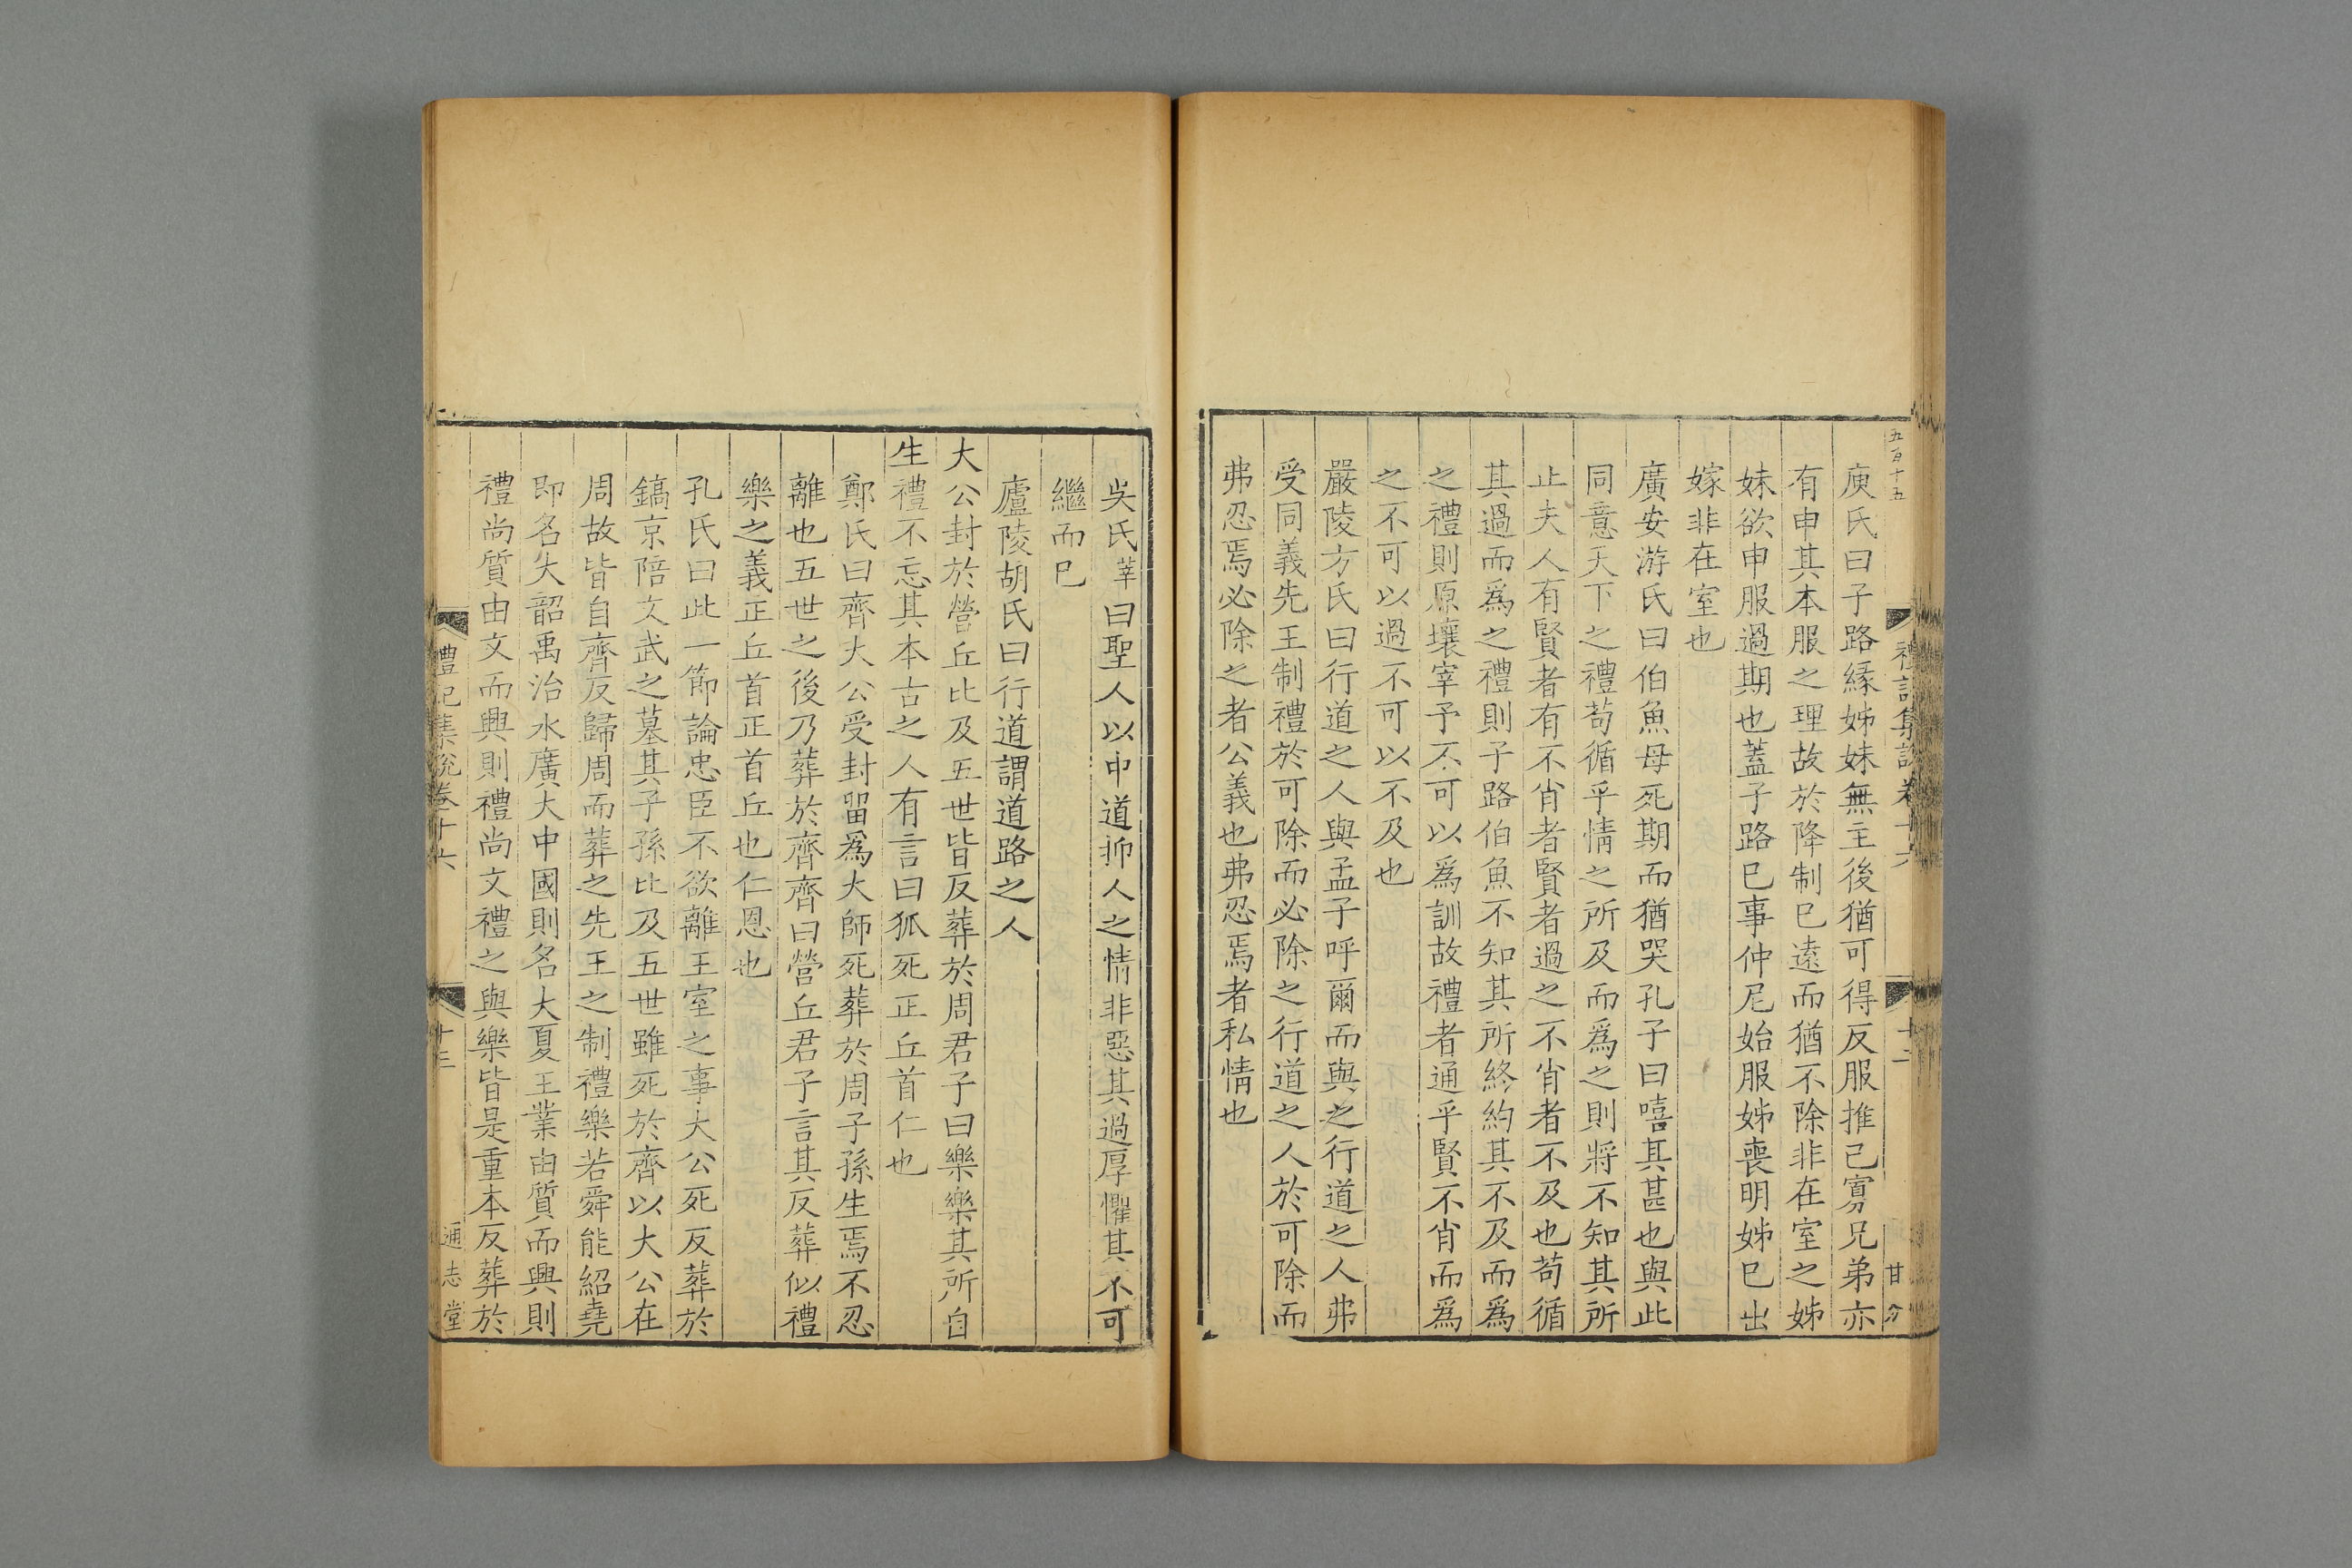 五百十五
禮記集說卷十六
十二
甘 分
庾氏曰子路緣姊妹無主後猶可得反服推己寡兄弟亦
有申其本服之理故於降制已遠而猶不除非在室之姊
妹欲申服過期也蓋子路已事仲尼始服姊喪明姊已出
嫁非在室也
廣安游氏曰伯魚母死期而猶哭孔子曰嘻其甚也與此
同意天下之禮苟循乎情之所及而為之則將不知其所
止夫人有賢者有不肖者賢者過之不肖者不及也苟循
其過而為之禮則子路伯魚不知其所終約其不及而為
之禮則原壤宰予不可以為訓故禮者通乎賢不肖而為
之不可以過不可以不及也
嚴陵方氏曰行道之人與孟子呼爾而與之行道之人弗
受同義先王制禮於可除而必除之行道之人於可除而
弗忍焉必除之者公義也弗忍焉者私情也
吳氏莘曰聖人以中道抑人之情非惡其過厚懼其不可
繼而已
廬陵胡氏曰行道謂道路之人
大公封於營丘比及五世皆反葬於周君子曰樂樂其所自
生禮不忘其本古之人有言曰狐死正丘首仁也
鄭氏曰齊大公受封留為大師死葬於周子孫生焉不忍
離也五世之後乃葬於齊齊曰營丘君子言其反葬似禮
樂之義正丘首正首丘也仁恩也
孔氏曰此一節論忠臣不欲離王室之事大公死反葬於
鎬京陪文武之墓其子孫比及五世雖死於齊以大公在
周故皆自齊反歸周而葬之先王之制禮樂若舜能紹堯
即名大韶禹治水廣大中國則名大夏王業由質而興則
禮尚質由文而興則禮尚文禮之與樂皆是重本反葬於
禮記集說卷十六
十三
通志堂